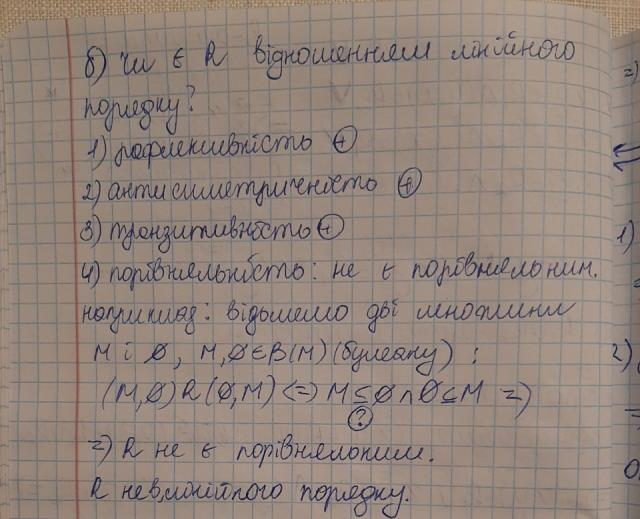 б) Чи є R відношенням лінійного
порядку?
1) рефлексивність ⊕
2) антисиметричність ⊕
3) транзитивність ⊕
4) порівняльність: не є порівняльним.
наприклад: візьмемо дві множини
M і ∅, M,∅∈B(M) (булеану) :
(M,∅)R(∅,M) <=> M⊆∅∧∅⊆M =>
?
=> R не є порівняльним.
R не в.лінійного порядку.
2)
1)
2)